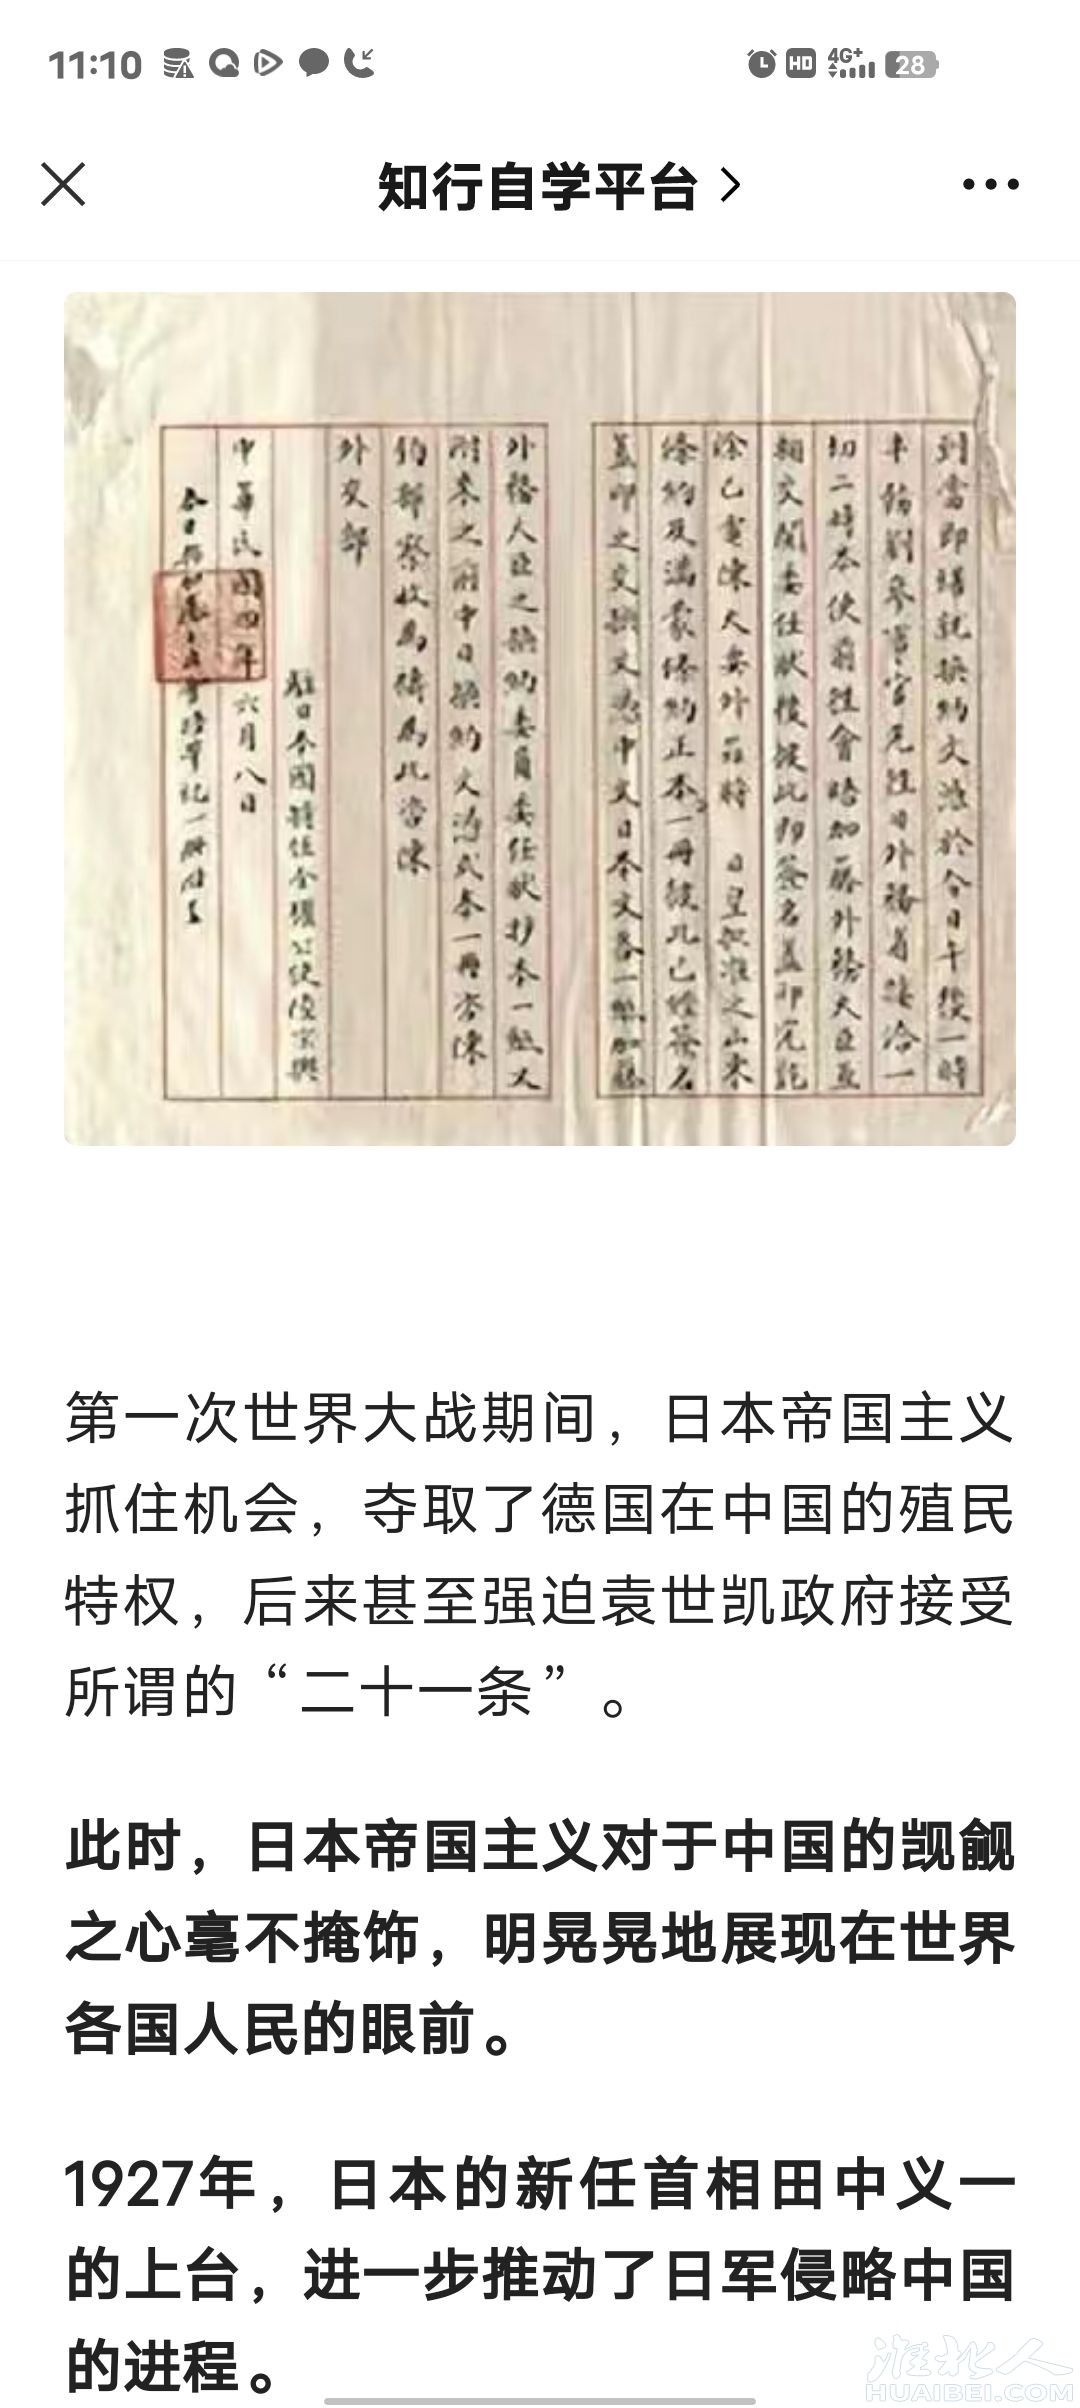 11:10
HD 4G+ 28
知行自学平台
到當即繕就換約文憑於今日午後一時
半飭劉參事官先往日外務省接洽一
切二時本使前往會晤加藤外務大臣互
相交閱委任狀後彼此均簽名蓋印完訖
除已電陳大要外茲將 日皇批准之山東
條約及滿蒙條約正本一冊彼此已經簽名
蓋印之交換文憑中文日本文各一紙加藤
外務大臣之換約委員委任狀抄本一紙又
附來之前中日換約文憑式本一冊咨陳
鈞部察收為禱為此咨陳
外交部
駐日本國特任全權公使陸宗輿
中華民國四年六月八日
第一次世界大战期间，日本帝国主义
抓住机会，夺取了德国在中国的殖民
特权，后来甚至强迫袁世凯政府接受
所谓的“二十一条”。
此时，日本帝国主义对于中国的觊觎
之心毫不掩饰，明晃晃地展现在世界
各国人民的眼前。
1927年，日本的新任首相田中义一
的上台，进一步推动了日军侵略中国
的进程。
淮北人
HUAIBEI.COM